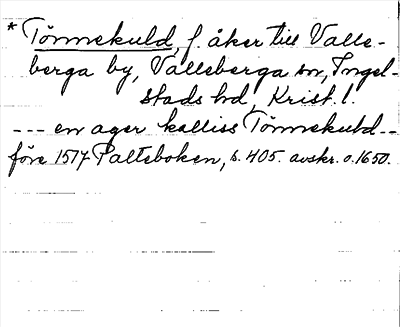 * Tönnekuld, f. åker till Valle-
berga by, Valleberga sn, Ingel-
stads hd, Krist. l.
--- en ager kalliss Tönnekuld --
före 1517 Palteboken, s. 405. avskr. o. 1650.